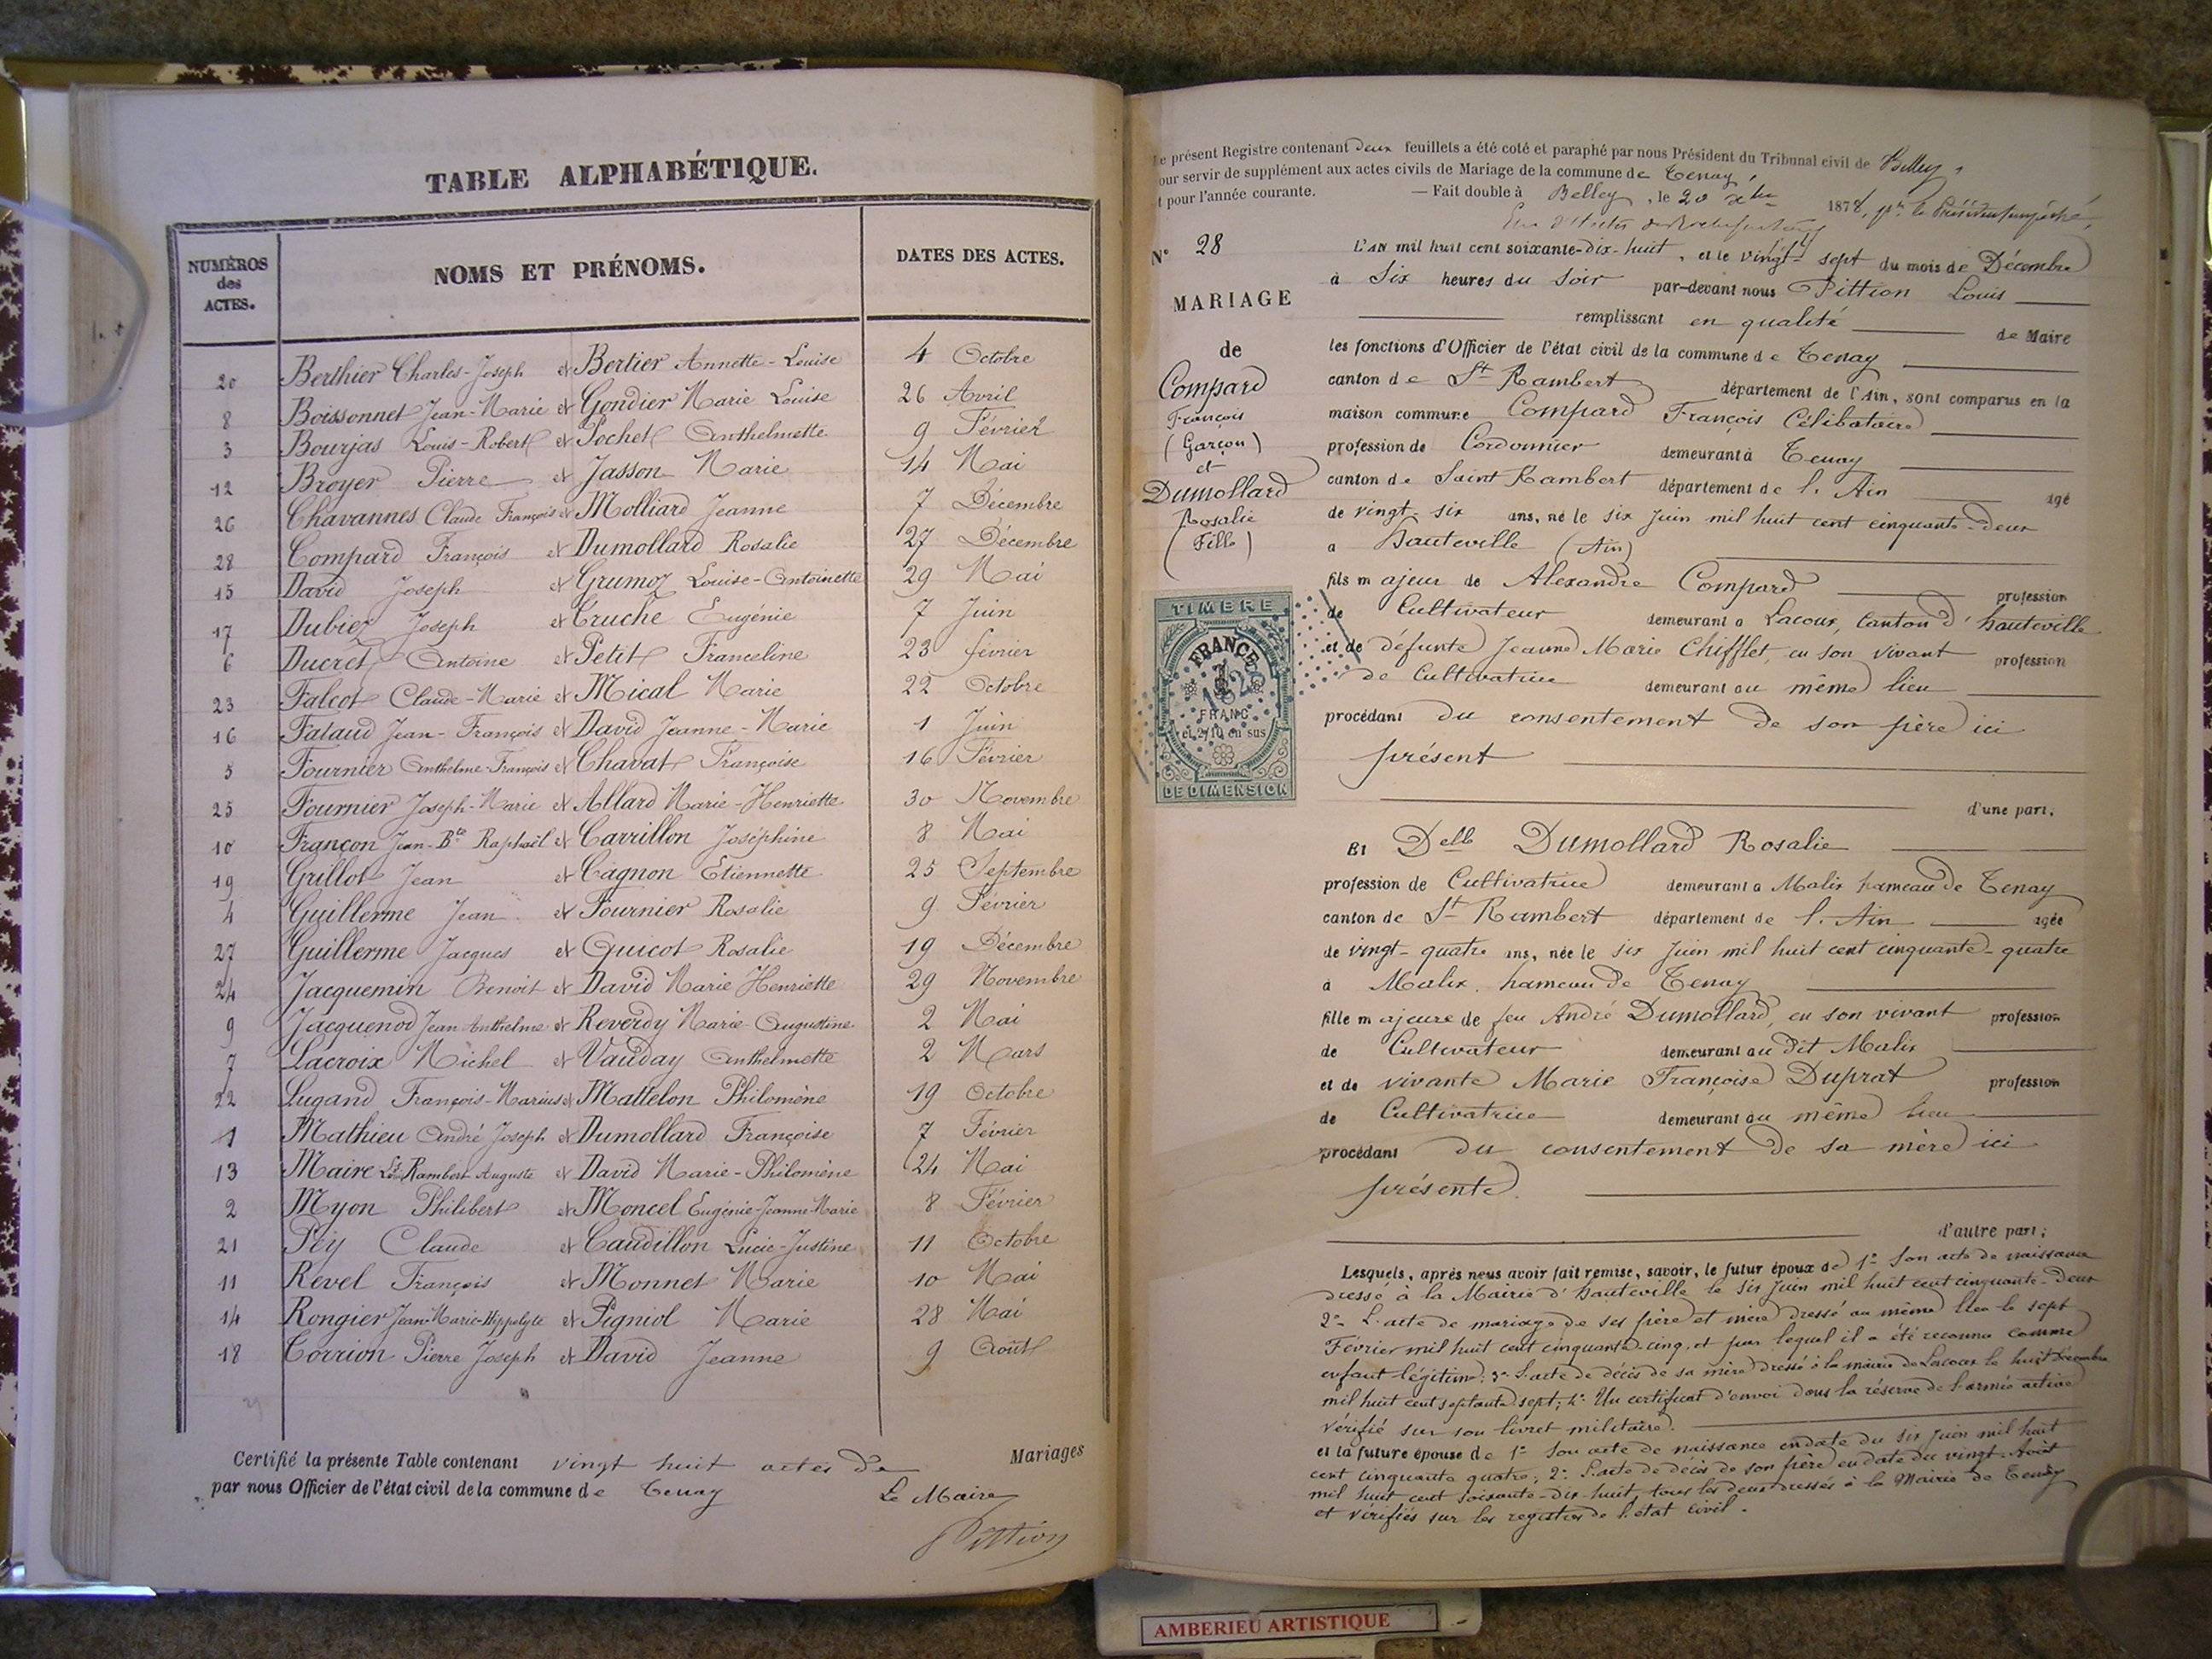 TABLE ALPHABÉTIQUE.
NUMÉROS des ACTES.
NOMS ET PRÉNOMS.
DATES DES ACTES.
20 Berthier Charles-Joseph et Bertier Annette-Louise 4 Octobre
8 Boissonnet Jean-Marie et Gondier Marie Louise 26 Avril
3 Bourjas Louis-Robert et Pochet Anthelmette 9 Février
12 Broyer Pierre et Jasson Marie 14 Mai
26 Chavannes Claude François et Molliard Jeanne 7 Décembre
28 Compard François et Dumollard Rosalie 27 Décembre
15 David Joseph et Grumoz Louise-Antoinette 29 Mai
17 Dubiez Joseph et Truche Eugénie 7 Juin
6 Ducret Antoine et Petit Franceline 23 février
23 Falcot Claude-Marie et Mical Marie 22 Octobre
16 Fataud Jean-François et David Jeanne-Marie 1 Juin
5 Fournier Anthelme-François et Chavat Françoise 16 Février
25 Fournier Joseph-Marie et Allard Marie-Henriette 30 Novembre
10 Françon Jean-Bte Raphaël et Carrillon Joséphine 8 Mai
19 Grillot Jean et Cagnon Etiennette 25 Septembre
4 Guillerme Jean et Fournier Rosalie 9 Février
27 Guillerme Jacques et Guicot Rosalie 19 Décembre
24 Jacquemin Benoit et David Marie Henriette 29 Novembre
9 Jacquenod Jean Anthelme et Reverdy Marie-Augustine 2 Mai
7 Lacroix Michel et Vauday Anthelmette 2 Mars
22 Lugand François-Marius et Mattelon Philomène 19 Octobre
1 Mathieu André Joseph et Dumollard Françoise 7 Février
13 Maire Rambert Auguste et David Marie-Philomène 24 Mai
2 Myon Philibert et Moncel Eugénie-Jeanne-Marie 8 Février
21 Pey Claude et Caudillon Lucie-Justine 11 Octobre
11 Revel François et Monnet Marie 10 Mai
14 Rongier Jean-Marie-Hippolyte et Pigniol Marie 28 Mai
18 Torrion Pierre Joseph et David Jeanne 9 Août
29
Certifié la présente Table contenant vingt huit actes de Mariages
par nous Officier de l'état civil de la commune de Tenay
Le Maire
Pittion
e présent Registre contenant deux feuillets a été coté et paraphé par nous Président du Tribunal civil de Belley,
our servir de supplément aux actes civils de Mariage de la commune de Tenay,
t pour l'année courante. — Fait double à Belley, le 20 xbre 1878, pr le Président empêché,
N° 28
MARIAGE
de
Compard
François
(Garçon)
et
Dumollard
Rosalie
(Fille)
TIMBRE
FRANCE
1
FRANC
et 2/10 en sus
DE DIMENSION
L'AN mil huit cent soixante-dix-huit, et le vingt-sept du mois de Décembre
à Six heures du Soir par-devant nous Pittion Louis
remplissant en qualité de Maire
les fonctions d'Officier de l'état civil de la commune de Tenay
canton de St Rambert département de l'Ain, sont comparus en la
maison commune Compard François Célibataire
profession de Cordonnier demeurant à Tenay
canton de Saint Rambert département de l'Ain agé
de vingt-six ans, né le six Juin mil huit cent cinquante-deux
a Hauteville (Ain)
fils majeur de Alexandre Compard profession
de Cultivateur demeurant a Lacoux, Canton d'Hauteville
et de défunte Jeanne Marie Chifflet, en son vivant profession
de Cultivatrice demeurant au même lieu
procédant du consentement de son père ici
présent
d'une part.
Et Delle Dumollard Rosalie
profession de Cultivatrice demeurant a Malix hameau de Tenay
canton de St Rambert département de l'Ain agée
de vingt-quatre ans, née le six Juin mil huit cent cinquante-quatre
à Malix hameau de Tenay
fille majeure de feu André Dumollard, en son vivant profession
de Cultivateur demeurant au dit Malix
et de vivante Marie Françoise Duprat profession
de Cultivatrice demeurant au même lieu
procédant du consentement de sa mère ici
présente.
d'autre part;
Lesquels, après nous avoir fait remise, savoir, le futur époux de 1° Son acte de naissance
dressé à la Mairie d'Hauteville le six Juin mil huit cent cinquante-deux
2° L'acte de mariage de ses père et mère dressé au même lieu le sept
Février mil huit cent cinquante-cinq, et par lequel il a été reconnu comme
enfant légitime; 3° L'acte de décès de sa mère dressé à la mairie de Lacoux le huit Décembre
mil huit cent septante sept; 4° Un certificat d'envoi dans la réserve de l'armée active
vérifié sur son livret militaire.
et la future épouse de 1° Son acte de naissance en date du six Juin mil huit
cent cinquante quatre; 2° L'acte de décès de son père en date du vingt Août
mil huit cent soixante-dix-huit, tous les deux dressés à la Mairie de Tenay
et vérifiés sur les registres de l'état civil.
AMBERIEU ARTISTIQUE